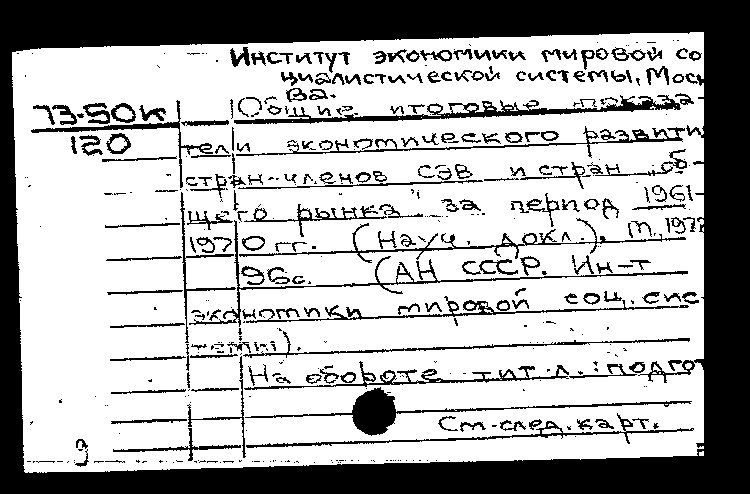 Институт экономики мировой со
циалистической системы, Моск
ва.
73-50к Общие итоговые показа-
120
тели экономического развити
стран-членов СЭВ и стран "об-
щего рынка" за период 1961-
1970 гг. (Науч. докл.). М., 1972
96с. (АН СССР. Ин-т
экономики мировой соц. сис-
темы).
На обороте тит. л.: подгот
См. след. карт.
9